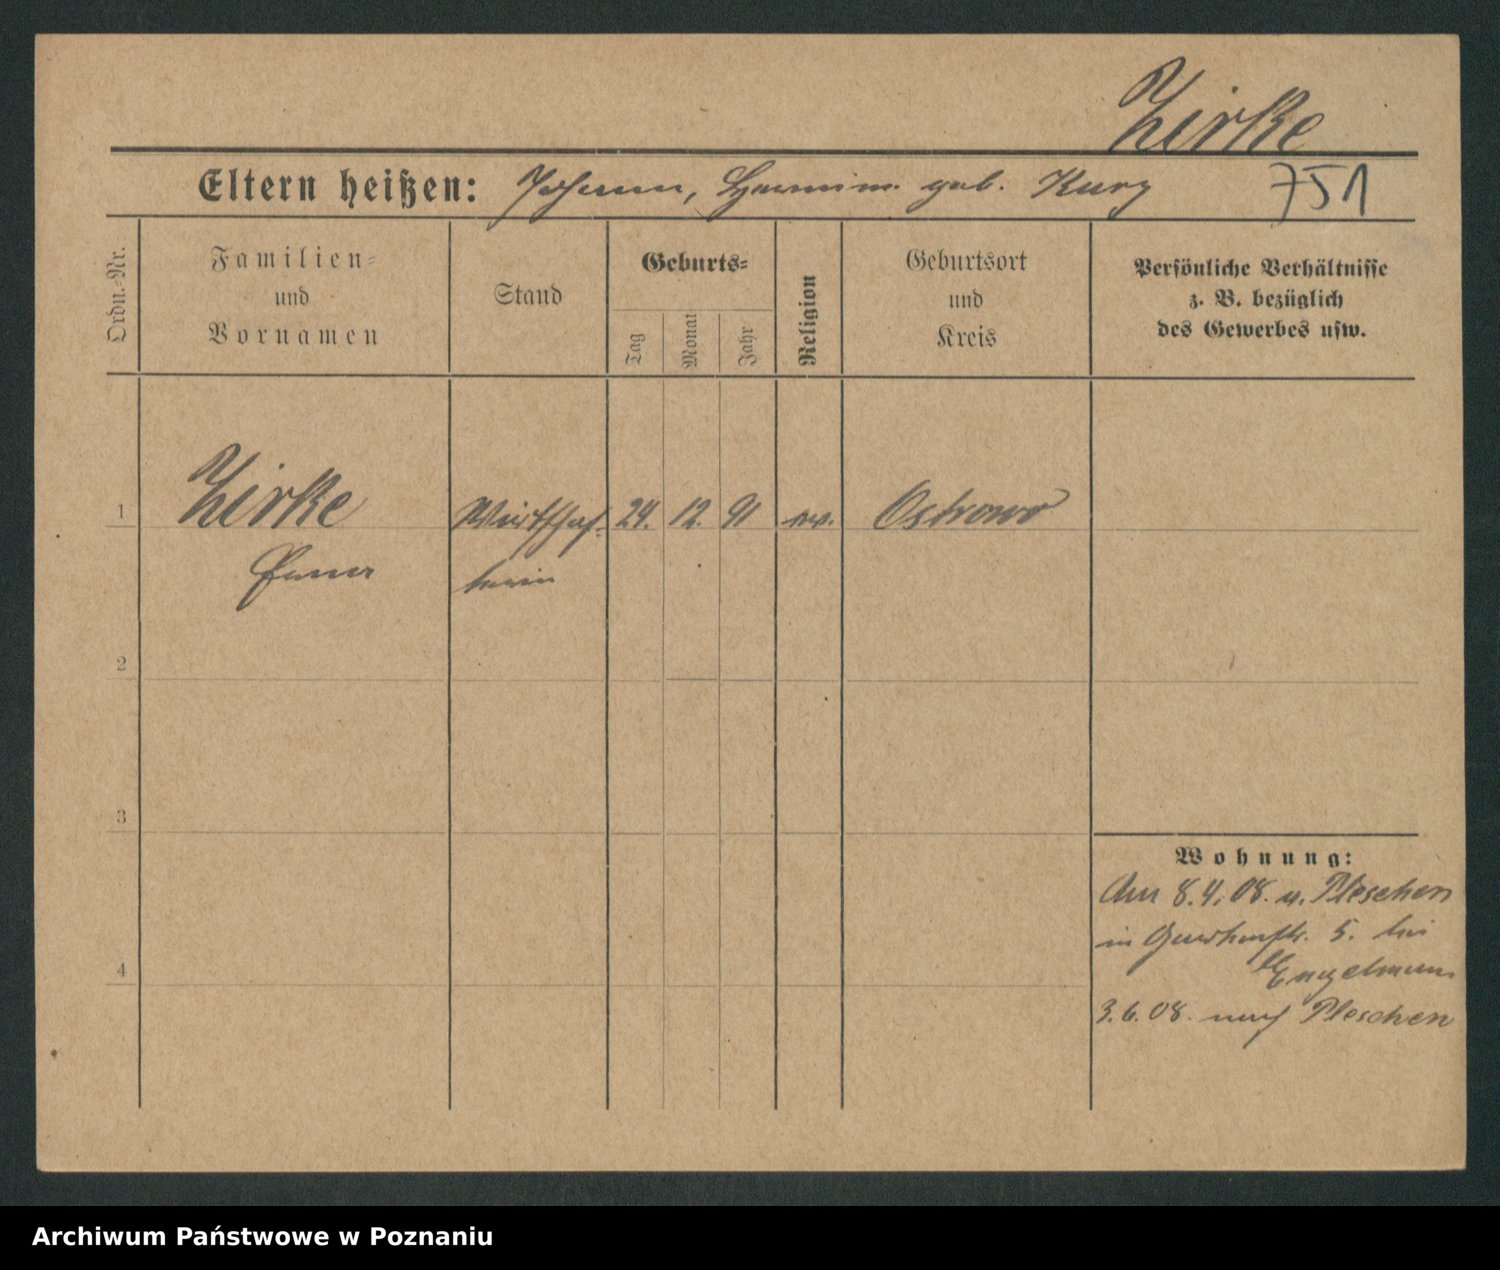 Zirke
Eltern heißen: Johann, geb. Kurz 751
Ordn.-Nr.
Familien-
und
Vornamen
Stand
Geburts-
Tag
Monat
Jahr
Religion
Geburtsort
und
Kreis
Persönliche Verhältnisse
z. B. bezüglich
des Gewerbes usw.
1 Zirke Wirtschaf- 24. 12. 91 ev. Ostrowo
terin
2
3
4
Wohnung:
Am 8.4.08. v. Pleschen
in 5. bei
Engelmann
3.6.08. nach Pleschen
Archiwum Państwowe w Poznaniu